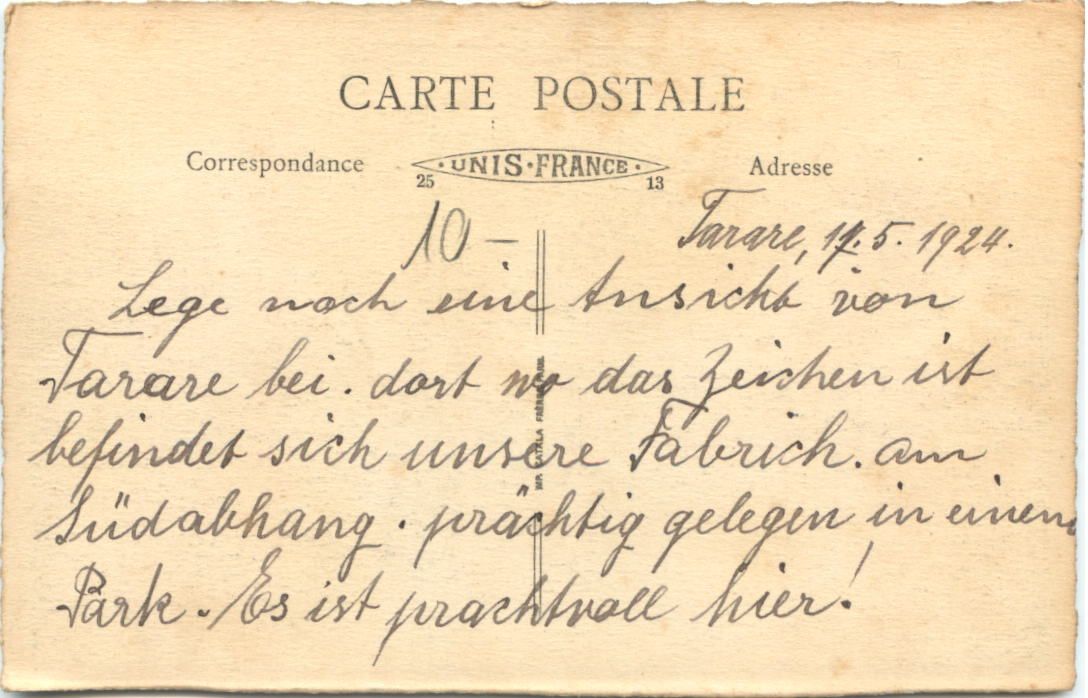 CARTE POSTALE
Correspondance
· UNIS · FRANCE ·
25 13
Adresse
10 –
Tarare, 5. 1924.
Lege noch eine Ansicht von
Tarare bei. dort wo das Zeichen ist
befindet sich unsere Fabrich. am
Südabhang. prächtig gelegen in einem
Park. Es ist prachtvoll hier!